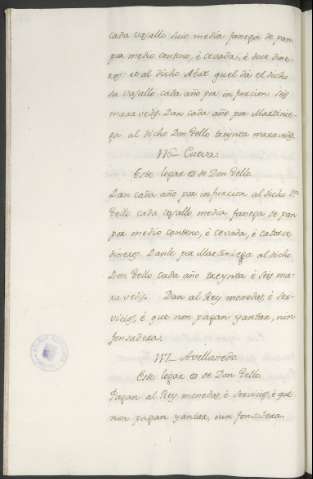 cada vasallo suio media fanega de pan
por medio centeno, é cevada, é doce dine-
ros et al dicho Abat quel dá el dicho
su vasallo cada año por infurcion seis
maravedis. Dan cada año por Martinie-
ga al dicho Don Tello treynta maravedis.
Cueva.
Este logar es de Don Tello
Dan cada año por infurcion al dicho Dn
Tello cada vasallo media fanega de pan
por medio centeno, é cevada, é catorce
dineros. Danle por Martiniega al dicho
Don Tello cada año treynta é seis ma-
ravedis. Dan al Rey monedas, é ser-
vicios, é que non pagan yantar, nin
fonsadera.
Avellaneda
Este logar es de Don Tello
Pagan al Rey monedas, é servicios, é que
non pagan yantar, nin fonsadera.